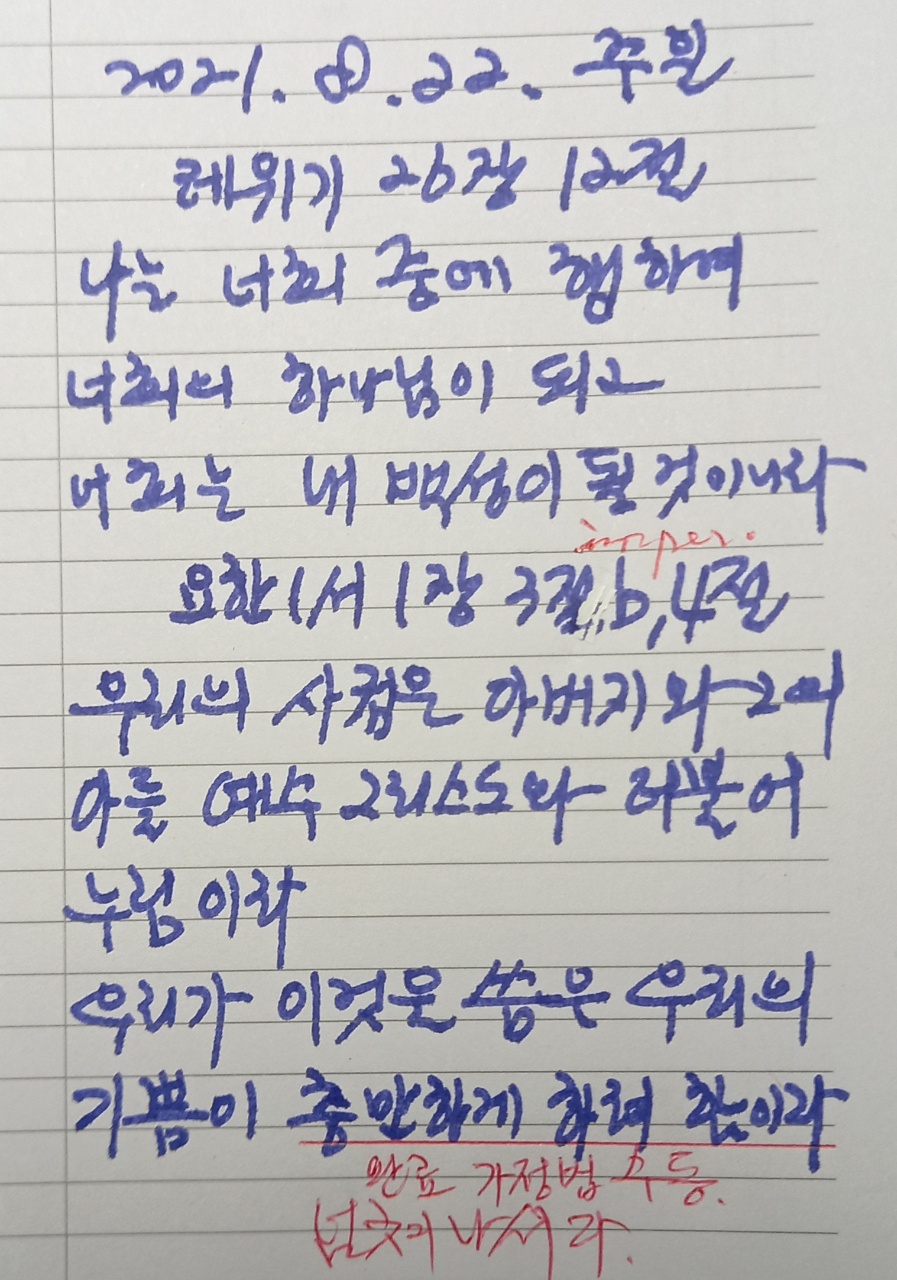 2021. 8. 22. 주일
레위기 26장 12절
나는 너희 중에 행하여
너희의 하나님이 되고
너희는 내 백성이 될 것이니라
imper.
요한1서 1장 3절b, 4절
우리의 사귐은 아버지와 그의
아들 예수 그리스도와 더불어
누림이라
우리가 이것을 씀은 우리의
기쁨이 충만하게 하려 함이라
완료 가정법 수동.